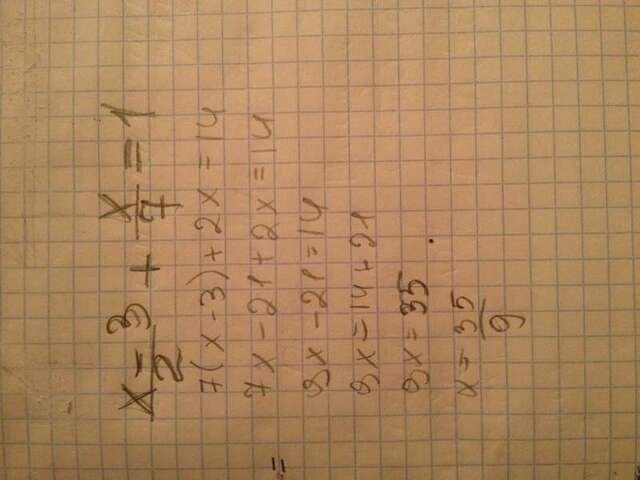 x-3/2 + x/7 = 1
7(x-3)+2x=14
7x-21+2x=14
=
9x-21=14
9x=14+21
9x=35
x=35/9